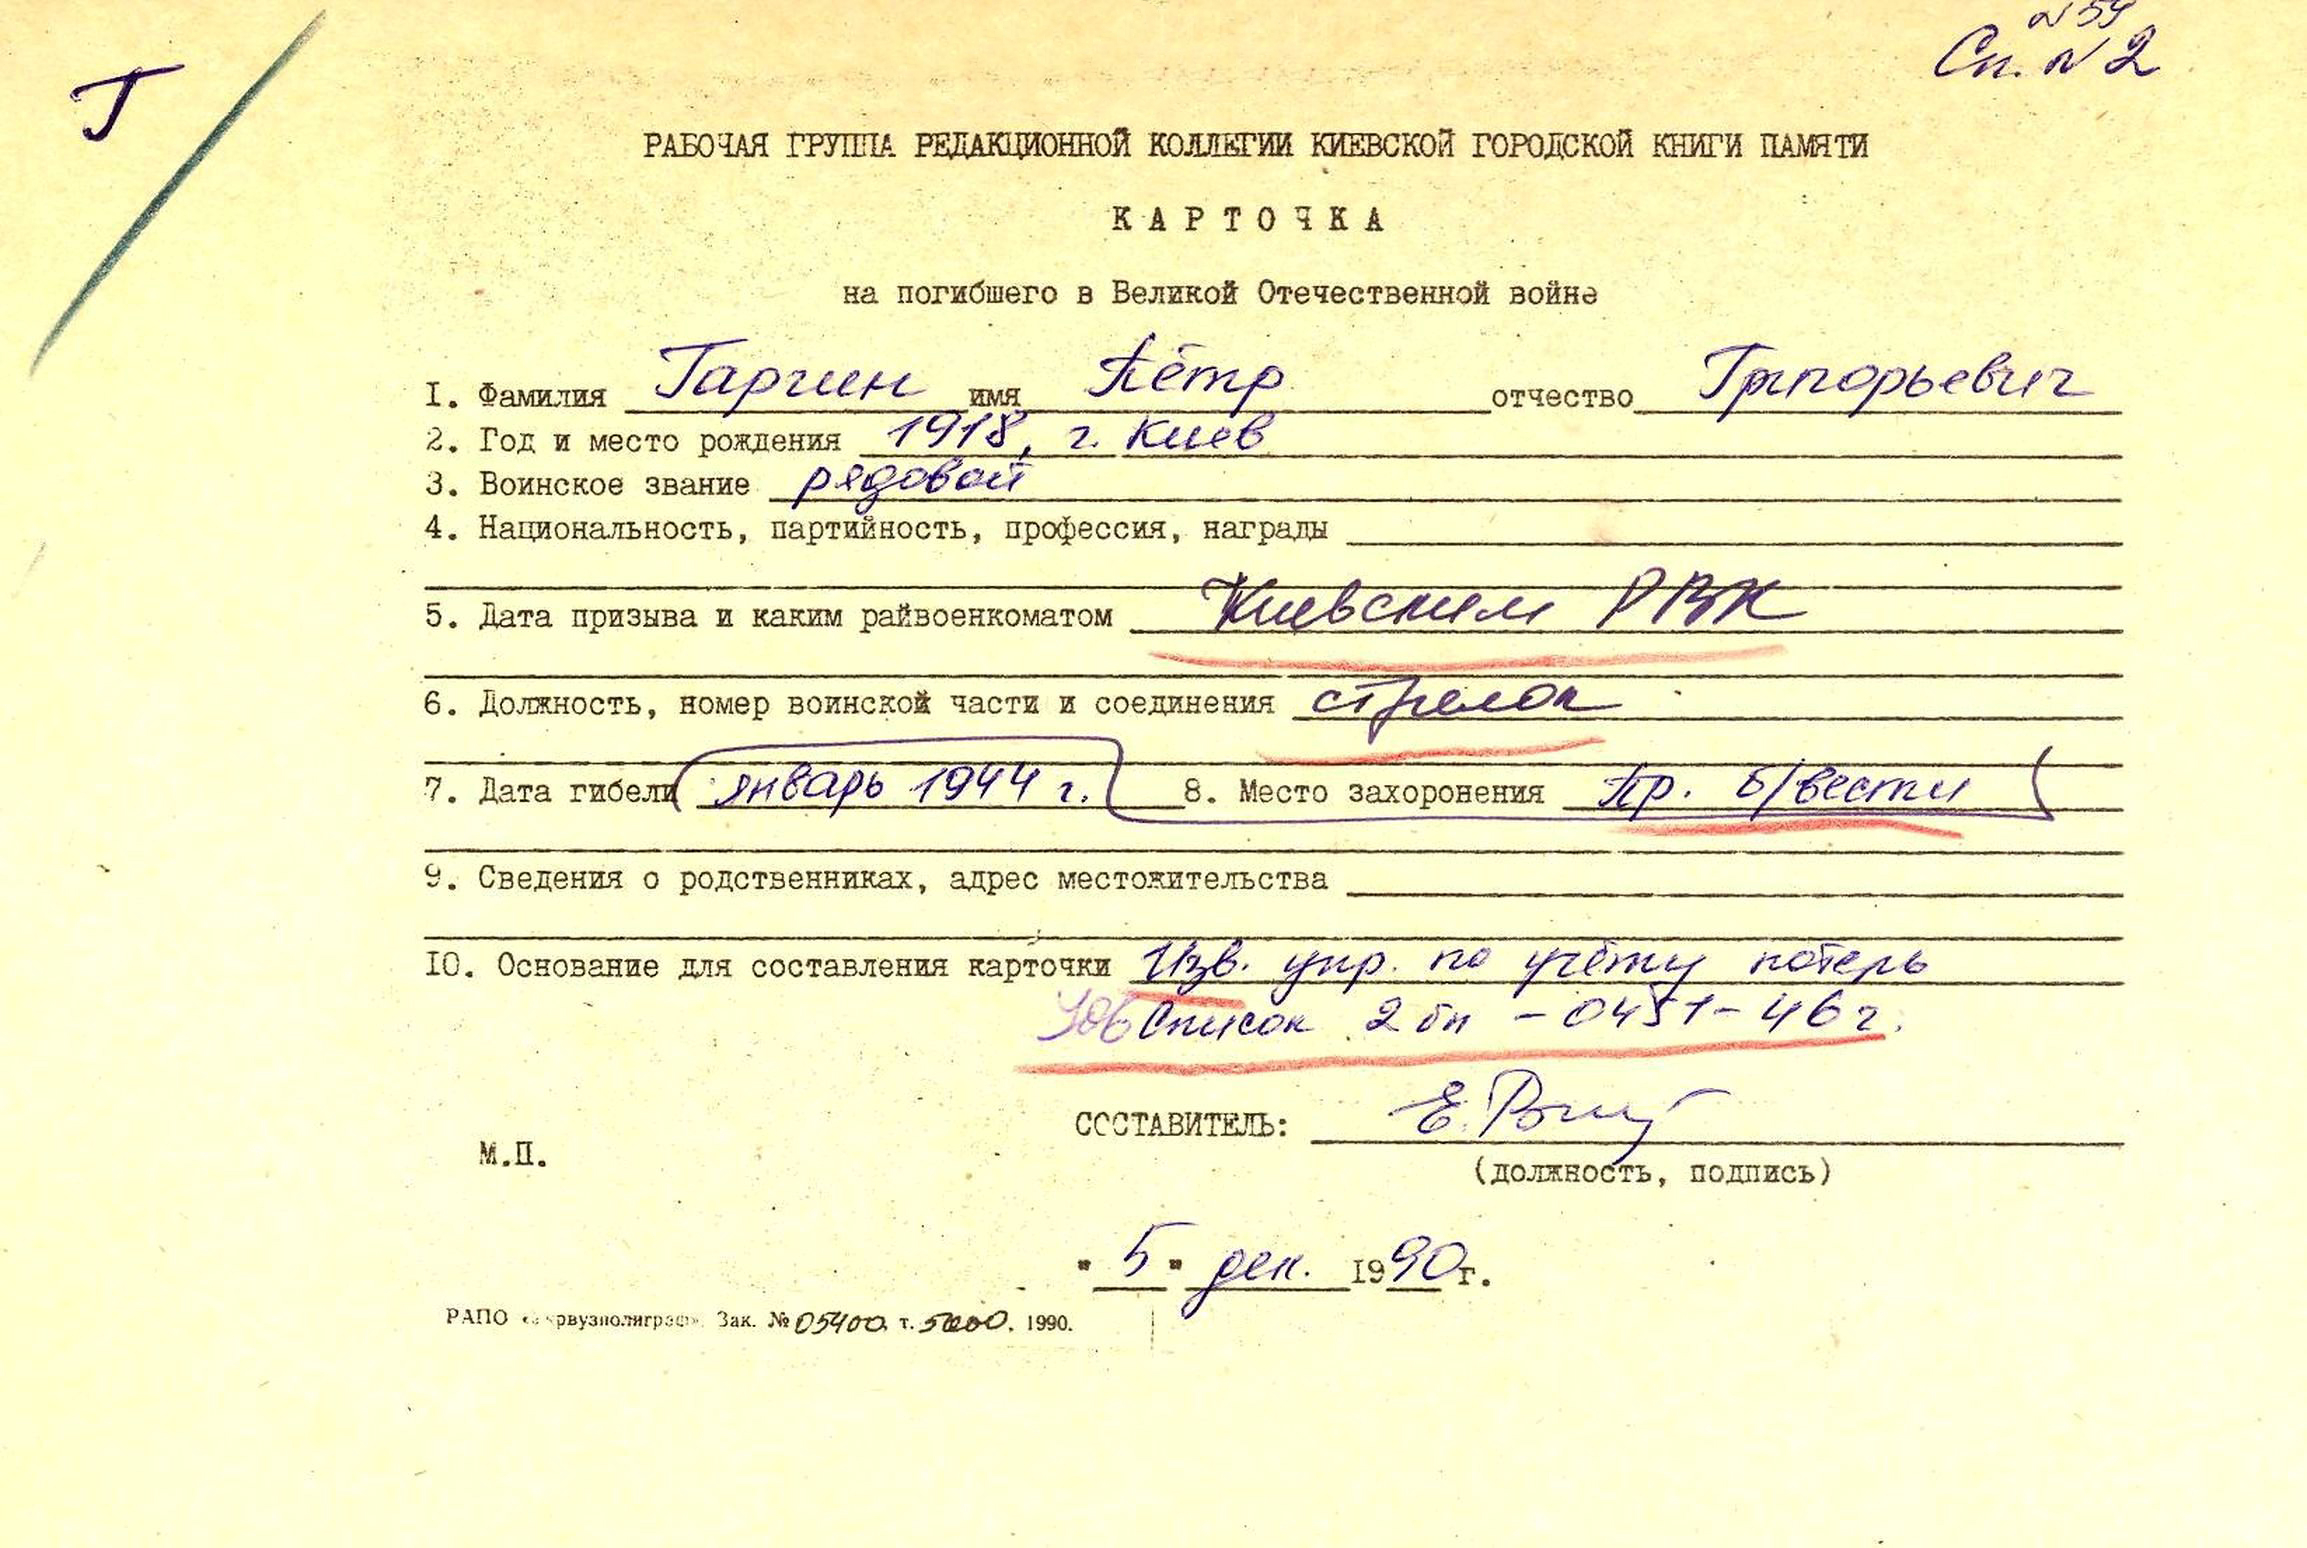 Г
№ 59
Сп. № 2
РАБОЧАЯ ГРУППА РЕДАКЦИОННОЙ КОЛЛЕГИИ КИЕВСКОЙ ГОРОДСКОЙ КНИГИ ПАМЯТИ
КАРТОЧКА
на погибшего в Великой Отечественной войне
I. Фамилия Гаргин имя Пётр отчество Григорьевич
2. Год и место рождения 1918, г. Киев
3. Воинское звание рядовой
4. Национальность, партийность, профессия, награды
5. Дата призыва и каким райвоенкоматом Киевским РВК
6. Должность, номер воинской части и соединения стрелок
7. Дата гибели январь 1944 г. 8. Место захоронения Пр. б/вести
9. Сведения о родственниках, адрес местожительства
IO. Основание для составления карточки Изв. упр. по учёту потерь
Список 2 бп - 0451 - 46 г.
СОСТАВИТЕЛЬ: Е.
М.П.
(должность, подпись)
"5" дек. 1990г.
РАПО «Укрвузполиграф». Зак. № 05400. т. 5000. 1990.